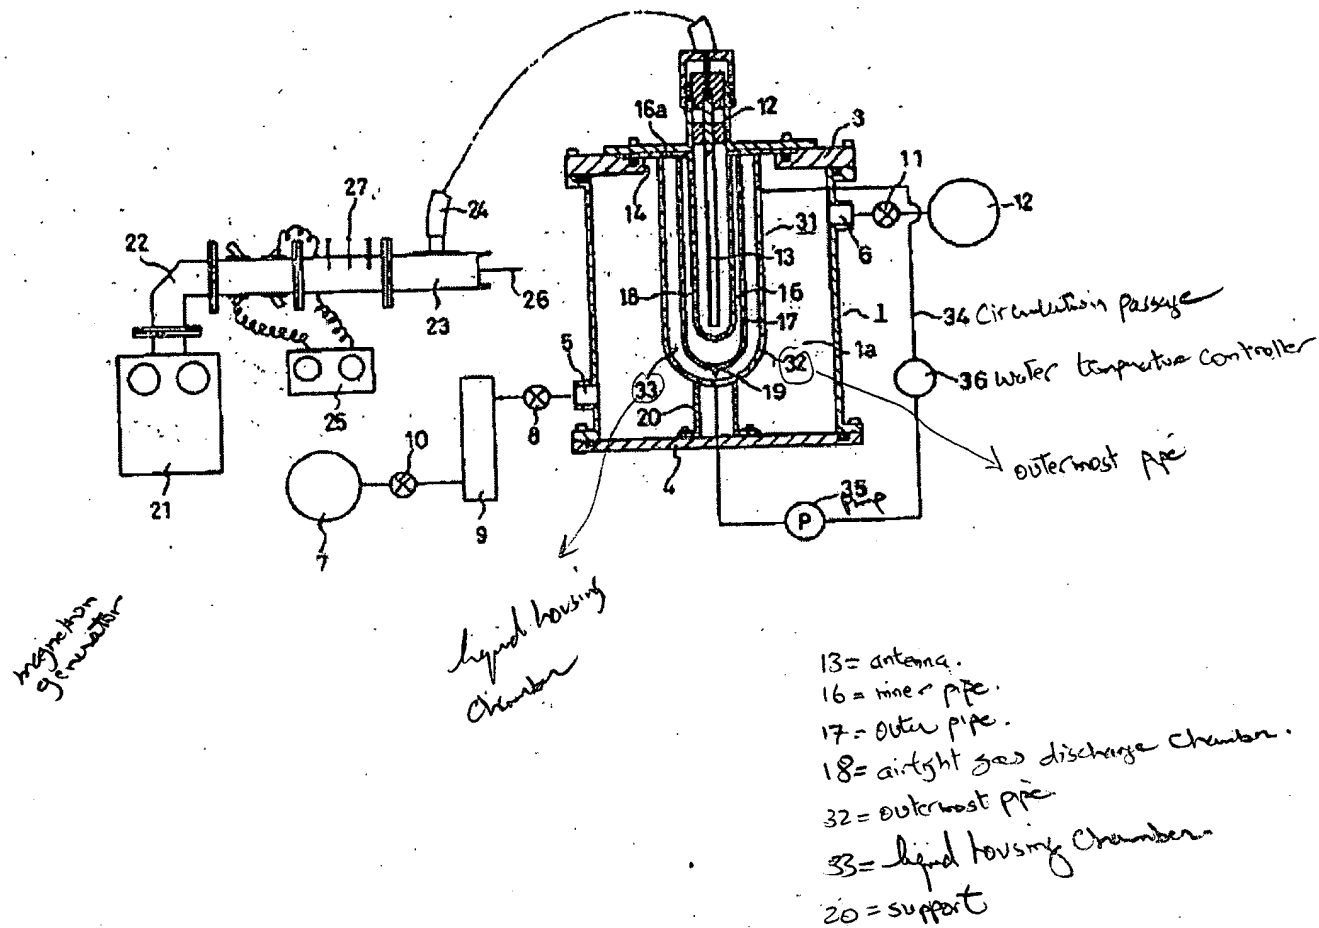 16a
12
3
11
27
24
14
31
6
12
22
13
18
16
26
23
17
1
34 Circulation passage
1a
5
33
19
32
36 water temperature controller
20
25
8
10
4
outermost pipe
21
35
pump
P
9
7
magnetron
generator
liquid housing
chamber
13 = antenna.
16 = inner pipe.
17 = outer pipe.
18 = airtight gas discharge chamber.
32 = outermost pipe.
33 = liquid housing chamber.
20 = support